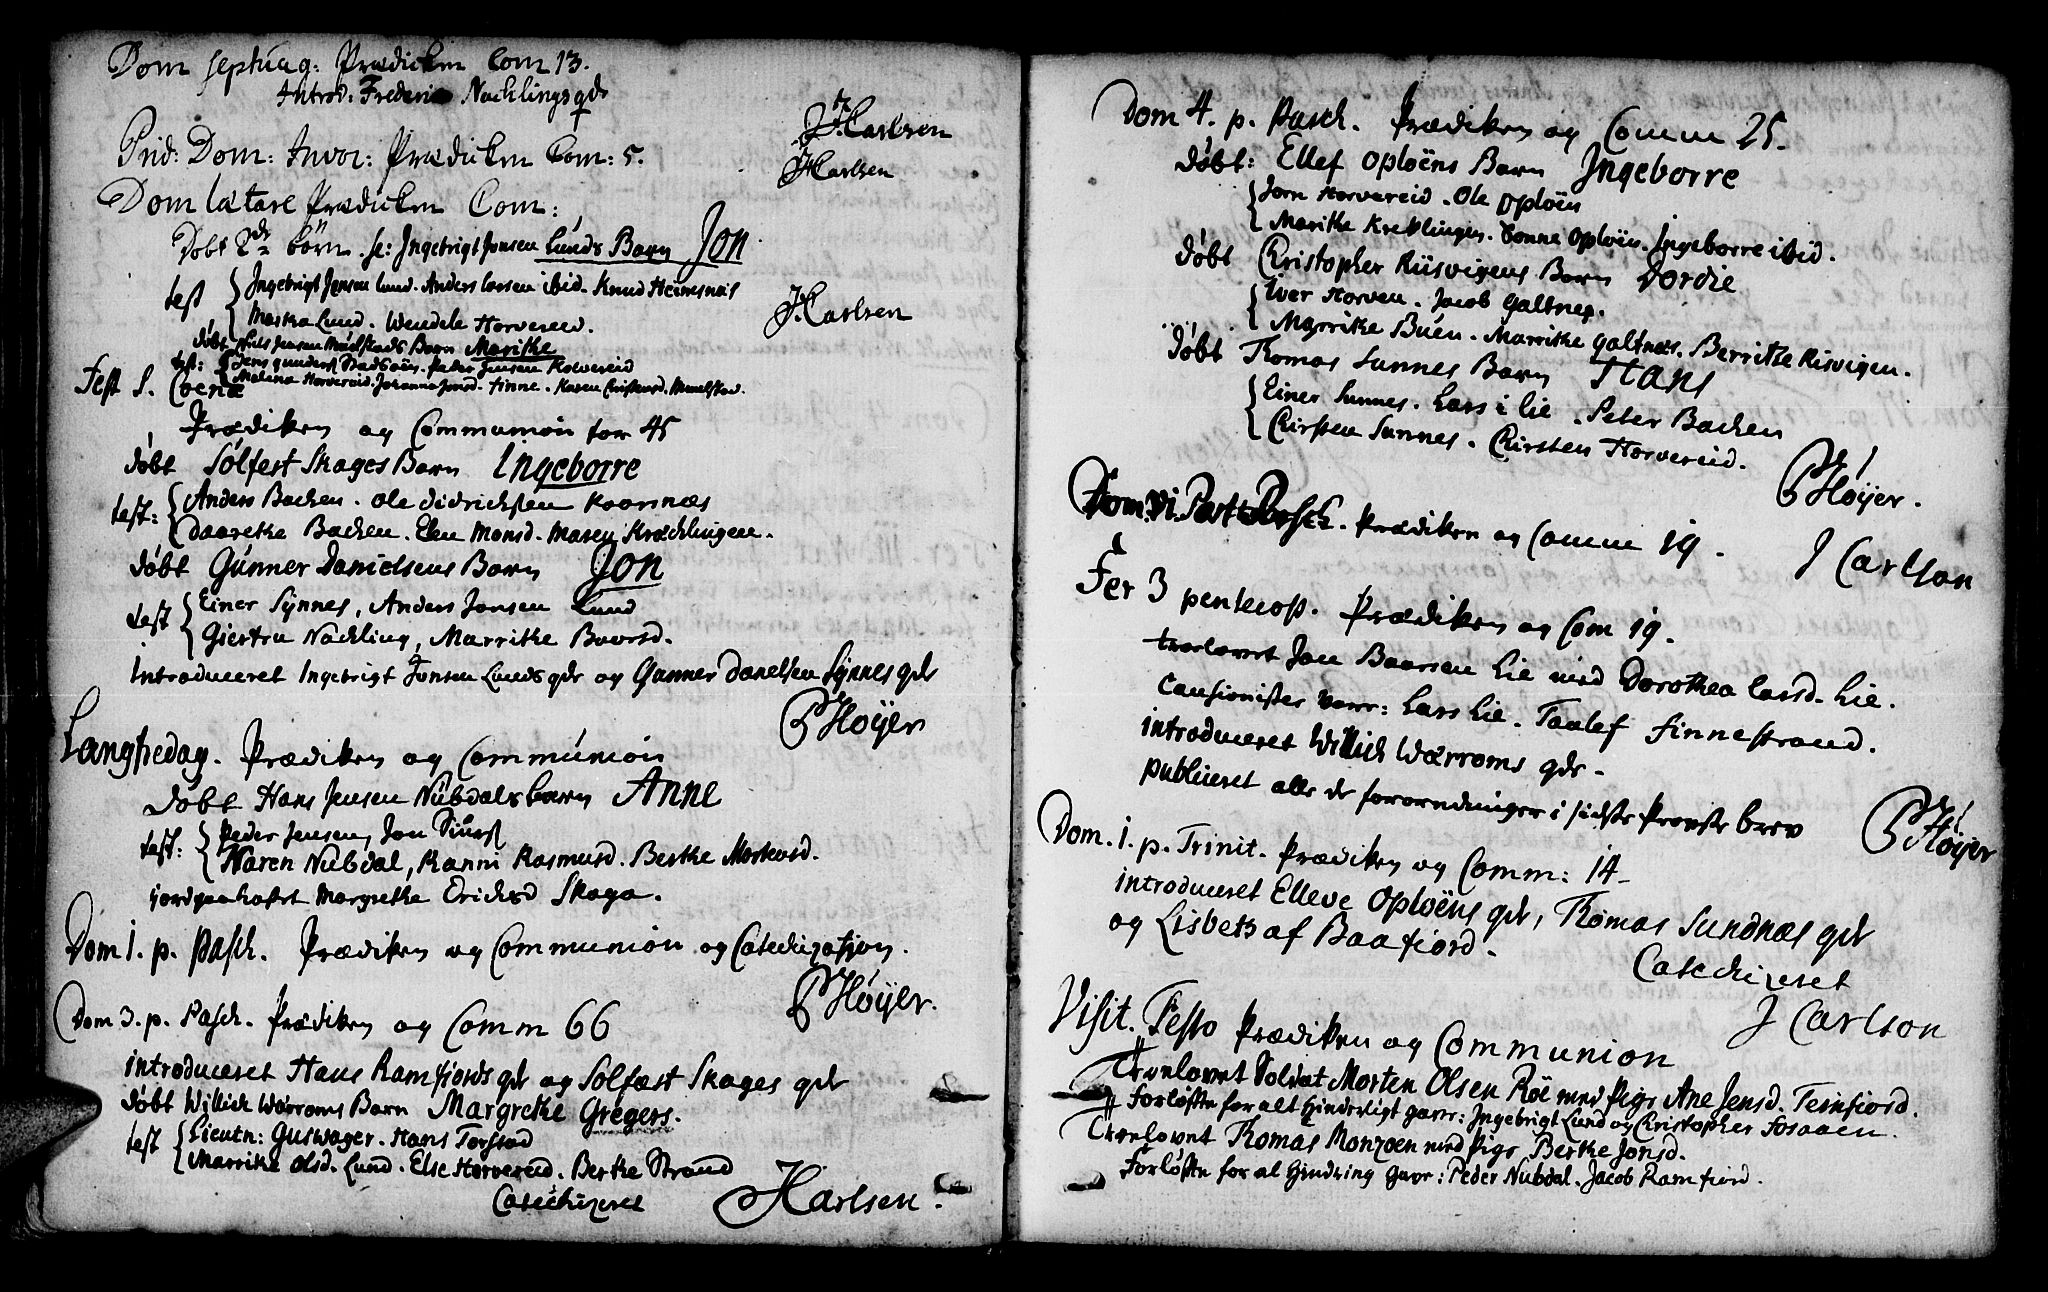 Dom septuag: Prædicken Com 13.
Introd: Frederic Nachlings qde
J: Karlsen
Prid: Dom: Invoc: Prædicken Com: 5.
J: Karlsen
Dom lætare Prædicken Com:
Døbt 2de børn. sc: Ingebrigt Jonsen Lunds Barn Jon
test Ingebrigt Jonsen Lund. Anders Larsen ibid. Knud Heimsnæs
J: Karlsen
Marka Lund. Wendele Horvereid.
døbt Niels Jensen Mulstads Barn Maritke
test: Jens gunders Peter Jensen Horvereid
Malena Horvereid. Johanna Jonsd. Finne. Karen Christensd. Mulstad.
Fest S. Coenæ
Prædiken og Communion for 45
døbt Sølfest Skages Barn Ingeborre
test: Anders Bachen. Ole Didrichsen Koornæs
Daaretke Bachen. Elen Monsd. Maren Krachlingen.
døbt Gunner Danielsens Barn Jon
test Einer Synnes, Anders Jonsen Lund
Giertru Nachling, Marritke Baarsd.
Introduceret Ingebrigt Jonsen Lunds qde og Gunner Danelsen Synnes qde
P Høyer
Langfredag. Prædiken og Communion
Døbt Hans Jensen Nubdals barn Anne
test: Peder Jensen, Jon Siurs
Karen Nubdal, Ranni Rasmusd. Berthe Morkusd.
jordpaakastet Margrethe Erichsd Skage.
Dom 1. p. Pasch. Prædiken og Communion og Catechization.
P Høyer.
Dom 3. p. Pasch. Prædiken og Comm 66
introduceret Hans Ramfiords qde og Sølfæst Skages qde
døbt Willich Wærroms Barn Margrethe Gregers.
test Lieutn: Guswager. Hans Torstad
Marritke Olsd. Lund. Else Horvereid. Berthe Strand
Catechizeret J Karlsen.
Dom 4. p. Pasch. Prædiken og Comm 25.
døbt: Ellef Oploëns Barn Ingeborre
Jorn Horvereid. Ole Oploën
Maritke Kreklingen. Oploën. Ingeborre ibid.
døbt Christopher Riisvigens Barn Dordie
Iver Horven. Jacob Galtnes.
Marritke Buen. Marritke Galtnes. Berritke Risvigen.
døbt Thomas Sunnes Barn Hans
Einer Sunnes. Lars i Lie. Peter Bachen
Chirsten Sunnes. Chirsten Horvereid.
P Høyer.
Dom. Vi. Post Pasch. Prædiken og Comm 19.
J Carlson
Fer 3 pentecost. Prædiken og Com 19.
troelovet Jon Baarsen Lie med Dorothea Larsd. Lie.
Causionister vare: Lars Lie. Taalef Finnestrand.
introduceret Willich Wærroms qde.
publiceret alle de forordninger i sidste Provste brev
P Høyer
Dom. 1. p. Trinit. Prædiken og Comm: 14
introduceret Elleve Oploëns qde, Thomas Sundnæs qde
og Lisbeth af Baafiord.
Catechizeret
J Carlson
Visit. Festo Prædiken og Communion
Troelovet Soldat Morten Olsen Röe med Pige Ane Jensd. Teinfiord.
Forløfte for alt hinderligt gave: Ingebrigt Lund og Christopher Fosaaen.
Troelovet Thomas Monzoen med Pige Berthe Jonsd.
Forløfte for al Hindring gave: Peder Nubdal. Jacob Ramfiord.